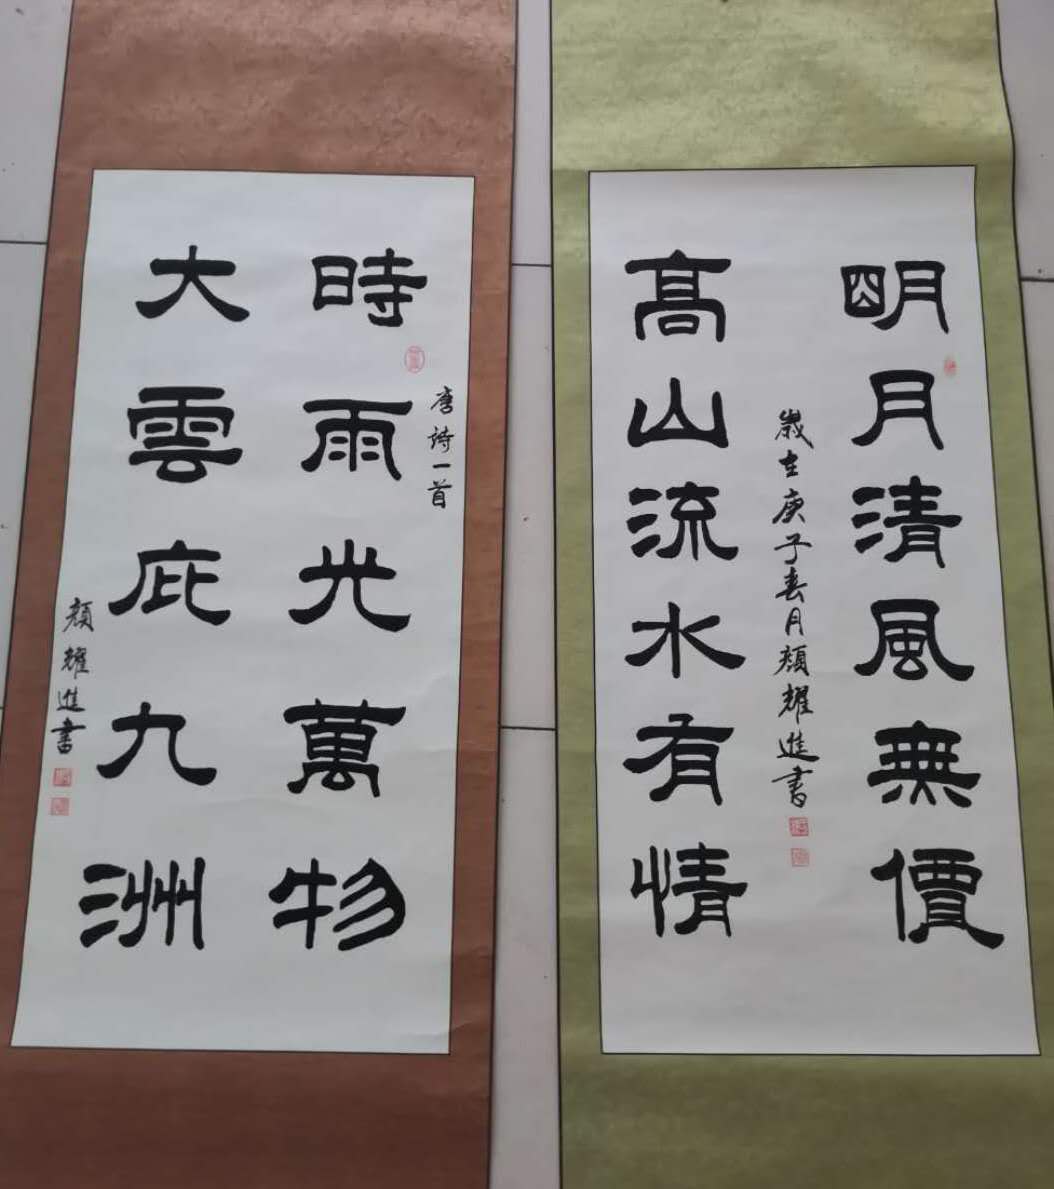 明月清風無價
高山流水有情
歲在庚子春月顏耀進書
唐詩一首
時雨光萬物
大雲庇九洲
顏耀進書